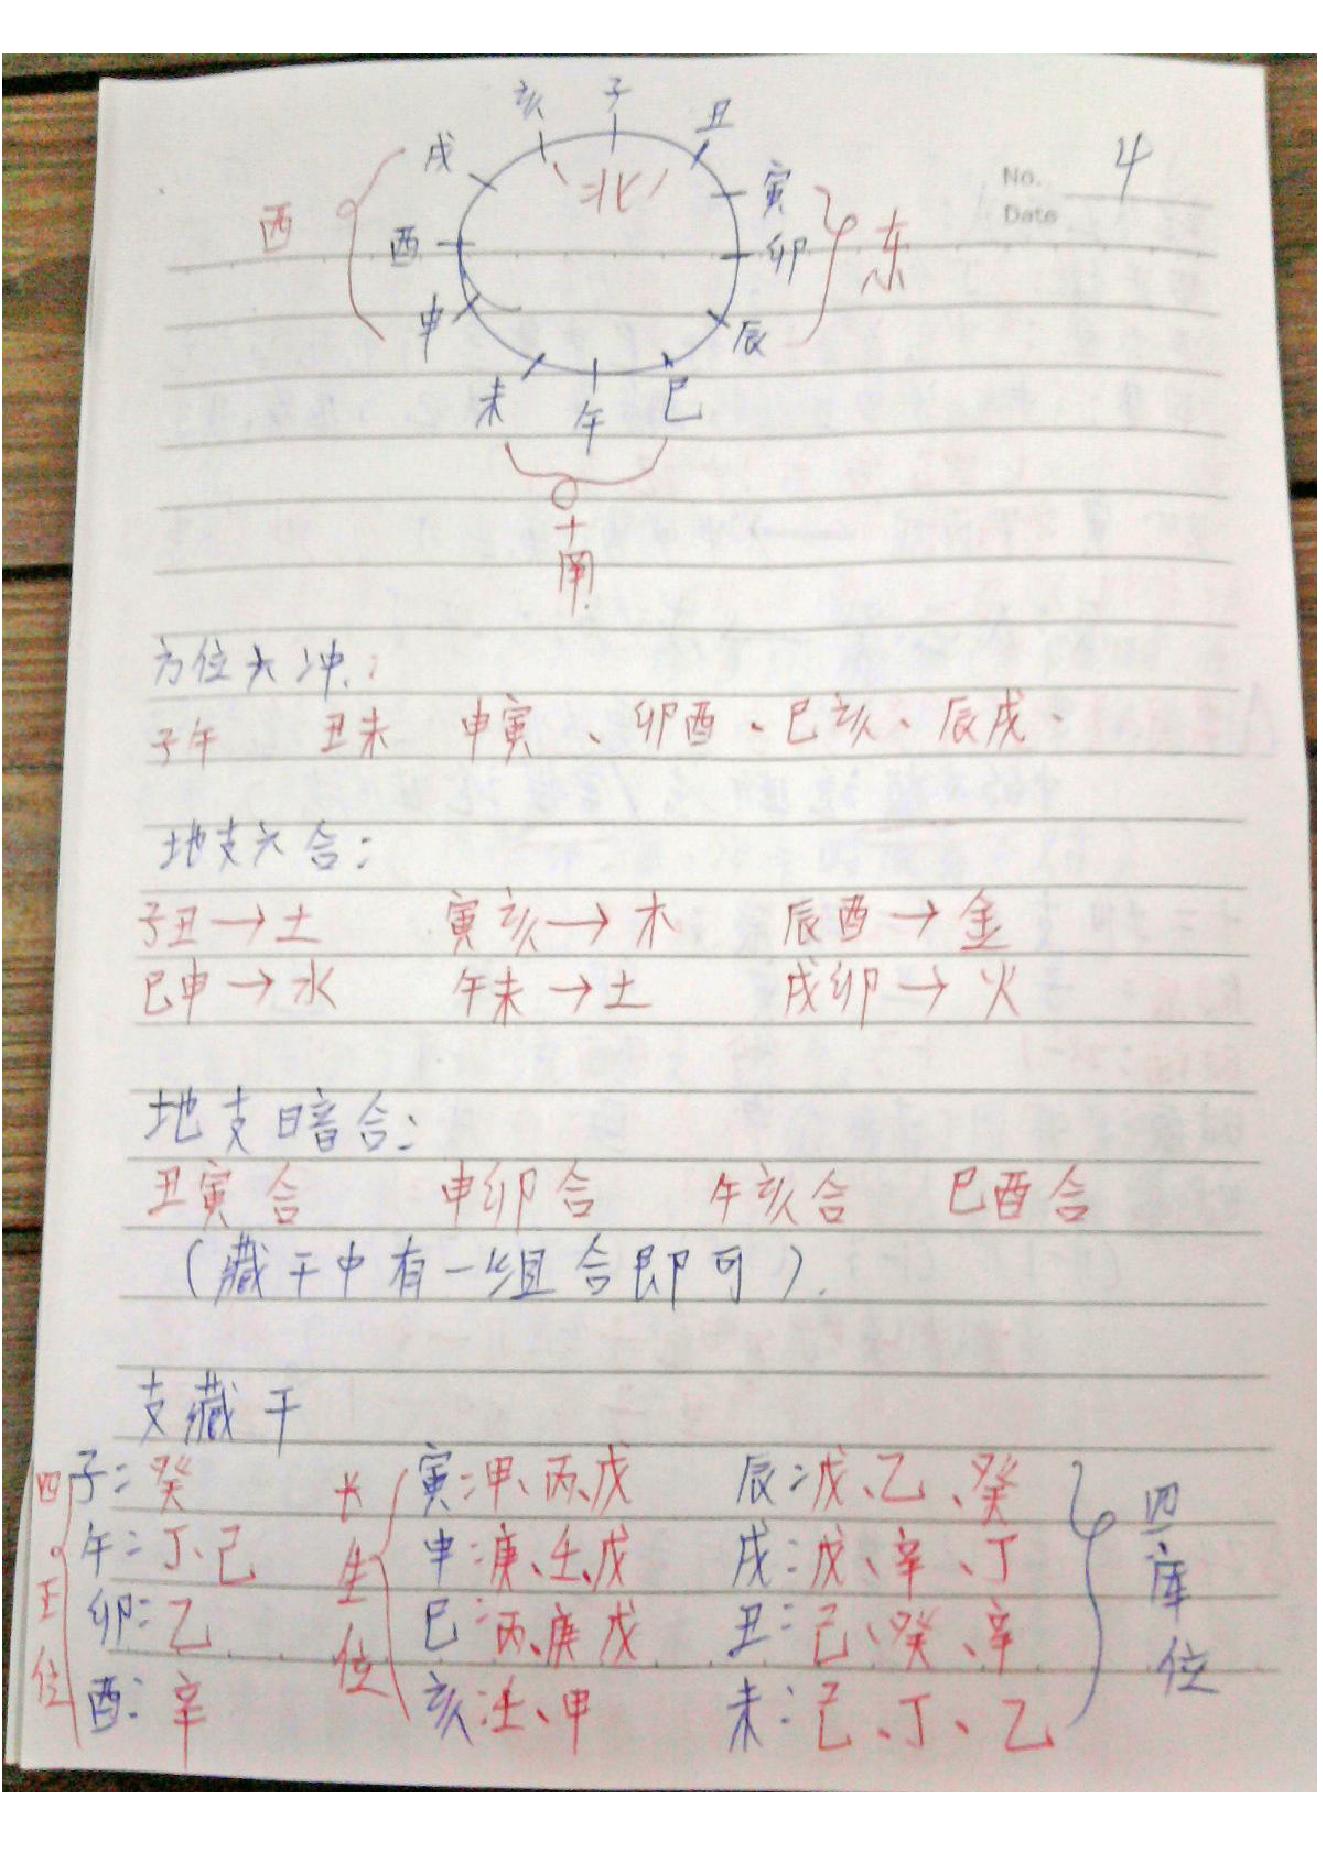 No. 4
Date
亥 子 丑
戌 北 寅
西 酉 卯 东
申 辰
未 午 巳
南
方位六冲:
子午 丑未 申寅、卯酉、巳亥、辰戌、
地支六合:
子丑→土 寅亥→木 辰酉→金
巳申→水 午未→土 戌卯→火
地支暗合:
丑寅合 申卯合 午亥合 巳酉合
(藏干中有一组合即可).
支藏干
四正位 长生位 四库位
子:癸 寅:甲、丙、戊 辰:戊、乙、癸
午:丁、己 申:庚、壬、戊 戌:戊、辛、丁
卯:乙 巳:丙、庚 戊 丑:己、癸、辛
酉:辛 亥:壬、甲 未:己、丁、乙